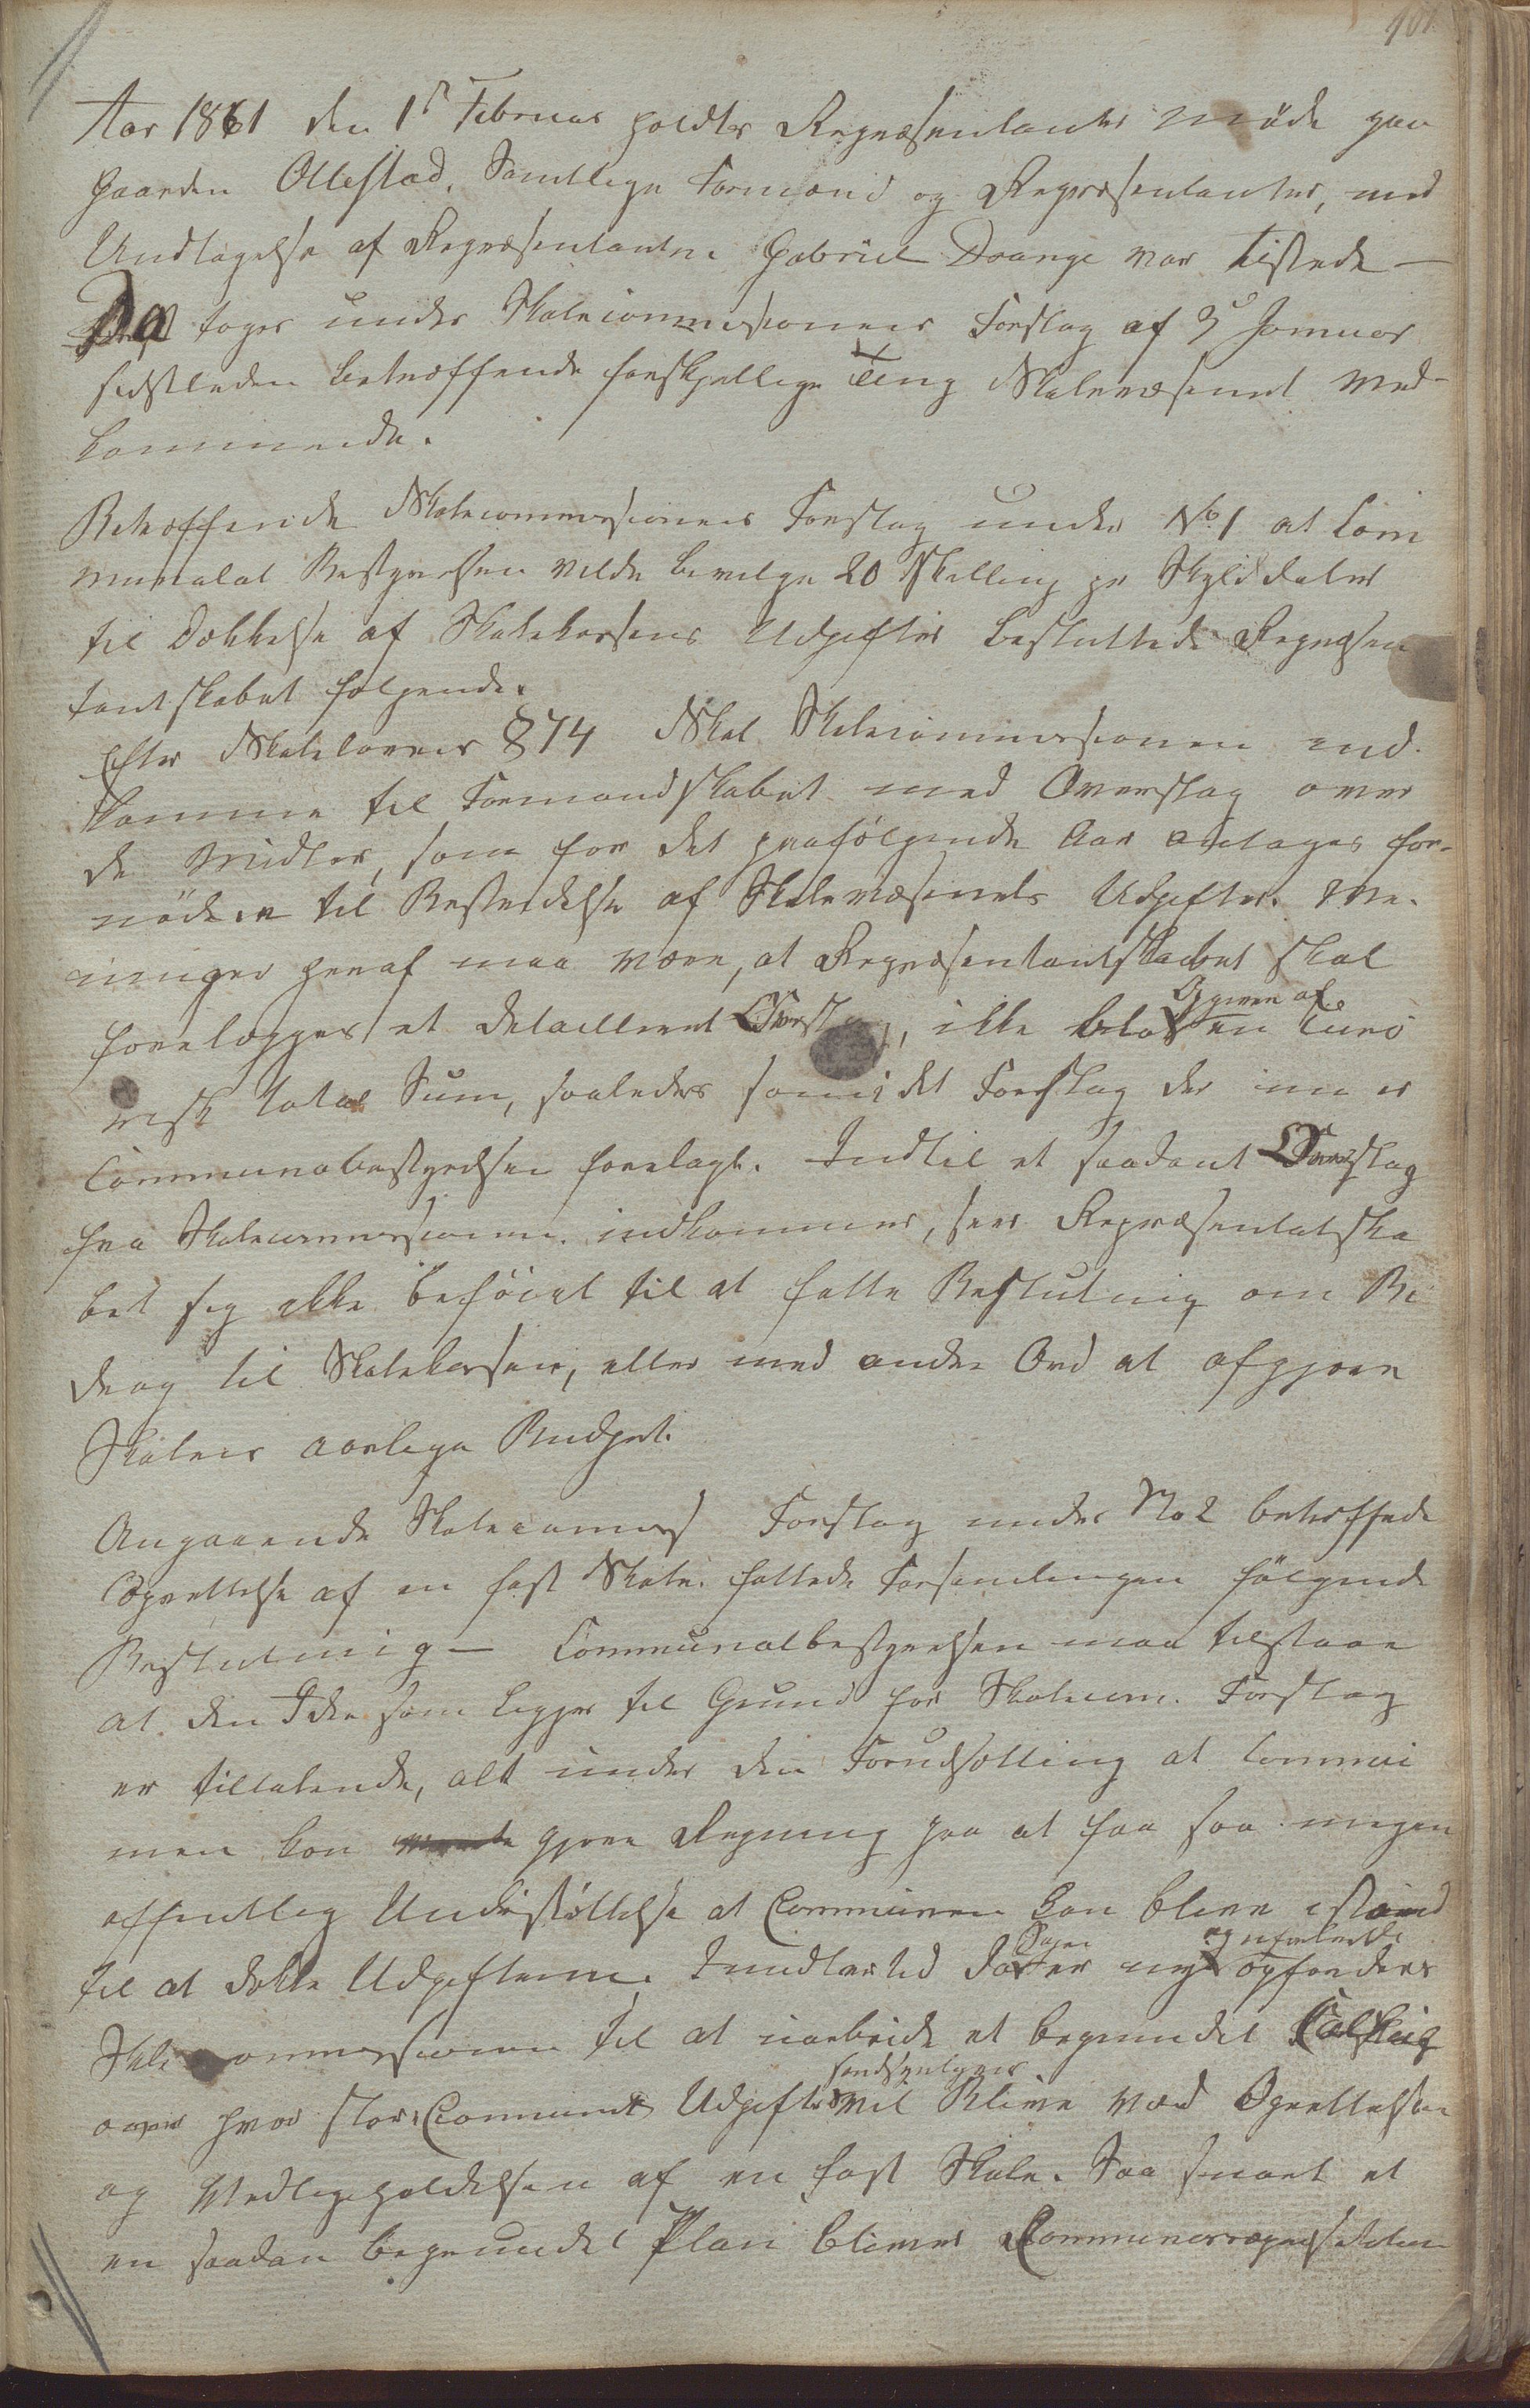 101.
Aar 1861 den 1ste Februar holdtes Repræsentanter möde paa
Gaarden Ollestad. Samtlige Formænd og Repræsentanter, med
Undtagelse af Repræsentanten Gabriel Drange var tilstede –
Da toges under Skolecommissionens Forslag af 3d Januar
sidstleden betræffende forskjellige Ting Skolevæsenet ved-
kommende.
Betræffende Skolecommissionens Forslag under No 1 at Com
munalat Bestyrelsen vilde bevilge 20 Skilling pr Skylddaler
til Dækkelse af Skolekassens Udgifter besluttede Repræsen
tantskabet følgende.
Efter Skolelovens § 74 skal Skolecommissionen ind-
komme til Formandskabet med Overslag over
de Midler, som for det paafölgende Aar antages for-
nödne til Bestridelse af Skolevæsenets Udgifter. Me-
ningen heraf maa være, at Repræsentantskabet skal
forelægges et detailleret Overslag, ikke blot
Opgiven af
en
total Sum, saaledes som i det Forslag der nu er
Communebestyrelsen forelagt. Indtil et saadant Overslag
fra Skolecommissionen indkommer, seer Repræsentatska
bet sig ikke beföiet til at fatte Beslutning om Bi
drag til Skolekassen, eller med andre Ord at afgjøre
Skolens aarlige Budget.
Angaaende Skolecommiss Forslag under No 2 betreffede
Oprettelse af en fast Skole fattede Forsamlingen fölgende
Beslutning – Communalbestyrelsen maa tilstaae
at den Ide som ligger til Grund for Skolecom. Forslag
er tiltalende, alt under den Forudsætting at Commu
nen kan gjøre Regning paa at faa saa megen
offentlig Understöttelse at Communen kan blive istand
til at dække Udgifterne. Imidlertid da
Sagen
er ny
og uforberedt
opfordres
Skolecommissionen til at udarbeide et begrundet
over hvor store Communes Udgifter
sandsynligviis
vil blive ved Oprettelsen
og Vedligeholdelsen af en fast Skole. Saa snart et
en saadan begrundet Plan bliver